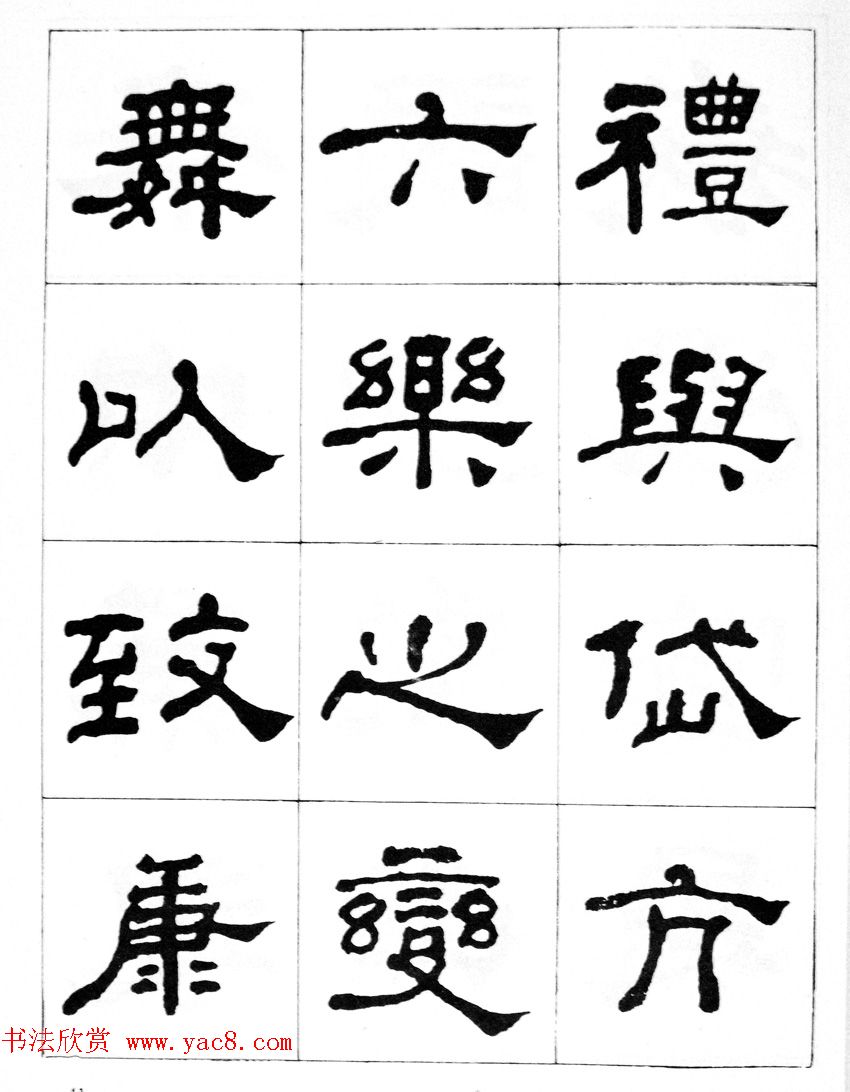 禮與岱亢
六樂之變
舞以致康
书法欣赏 www.yac8.com